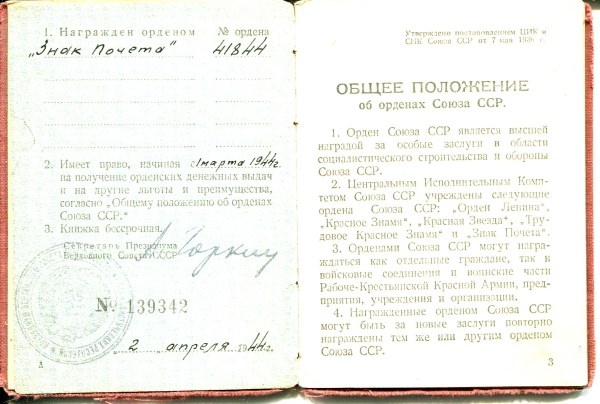 1. Награжден орденом № ордена
„Знак Почета" 41844
2. Имеет право, начиная с 1 марта 1944 г.
на получение орденских денежных выдач
и на другие льготы и преимущества,
согласно „Общему положению об орденах
Союза ССР."
3. Книжка бессрочная.
Секретарь Президиума
Верховного Совета СССР
Горкин
№ 139342
2 апреля 1944 г.
Утверждено постановлением ЦИК и
СНК Союза ССР от 7 мая 1936 г.
ОБЩЕЕ ПОЛОЖЕНИЕ
об орденах Союза ССР.
1. Орден Союза ССР является высшей
наградой за особые заслуги в области
социалистического строительства и обороны
Союза ССР.
2. Центральным Исполнительным Коми-
тетом Союза ССР учреждены следующие
ордена Союза ССР: „Орден Ленина",
„Красное Знамя", „Красная Звезда", „Тру-
довое Красное Знамя" и „Знак Почета".
3. Орденами Союза ССР могут награ-
ждаться как отдельные граждане, так и
войсковые соединения и воинские части
Рабоче-Крестьянской Красной Армии, пред-
приятия, учреждения и организации.
4. Награжденные орденом Союза ССР
могут быть за новые заслуги повторно
награждены тем же или другим орденом
Союза ССР.
3